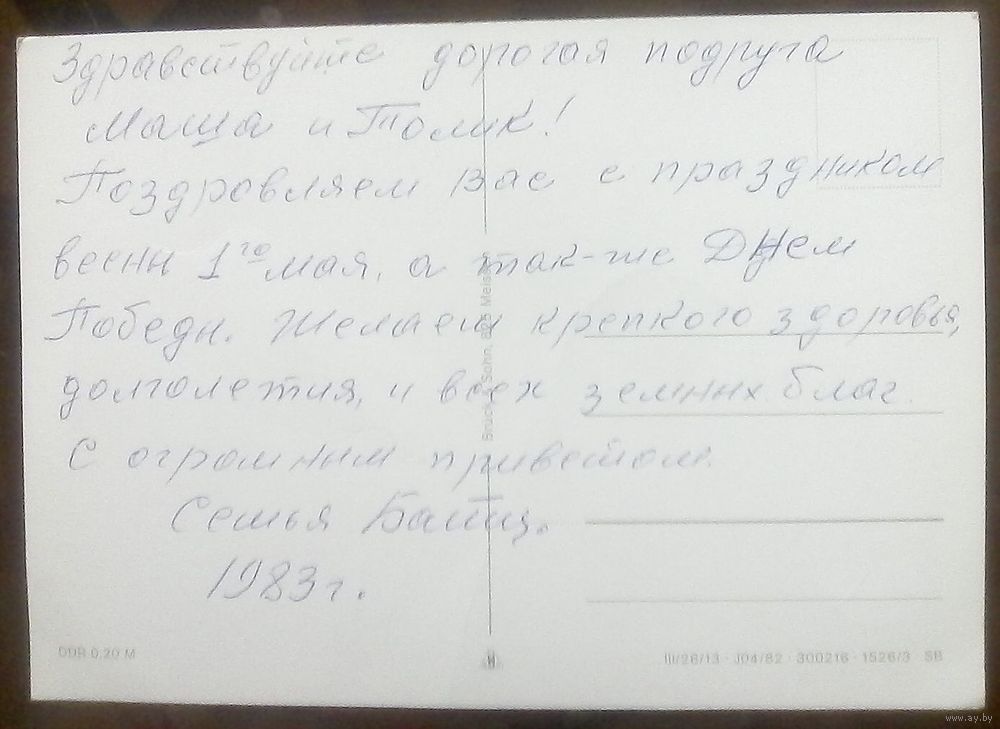 Здравствуйте дорогая подруга
Маша и Толик!
Поздровляем Вас с праздником
весны 1го мая, а так-же Днем
Победы. Желаем крепкого здоровья,
долголетия, и всех земных благ.
С огромным приветом.
Семья
1983 г.
DDR 0,20 M
III/26/13 · J04/82 · 300216 · 1526/3 SB
www.ay.by